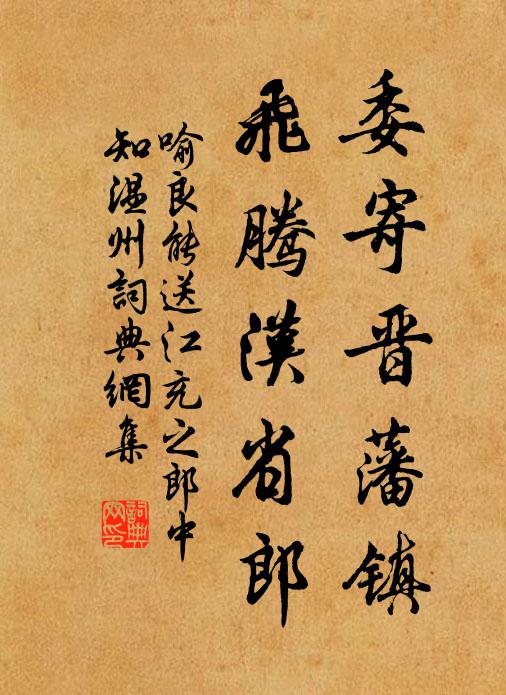 委寄晋藩镇
飛腾漢省郎
喻良能送江充之郎中
知温州詞典網集
詞典
网印